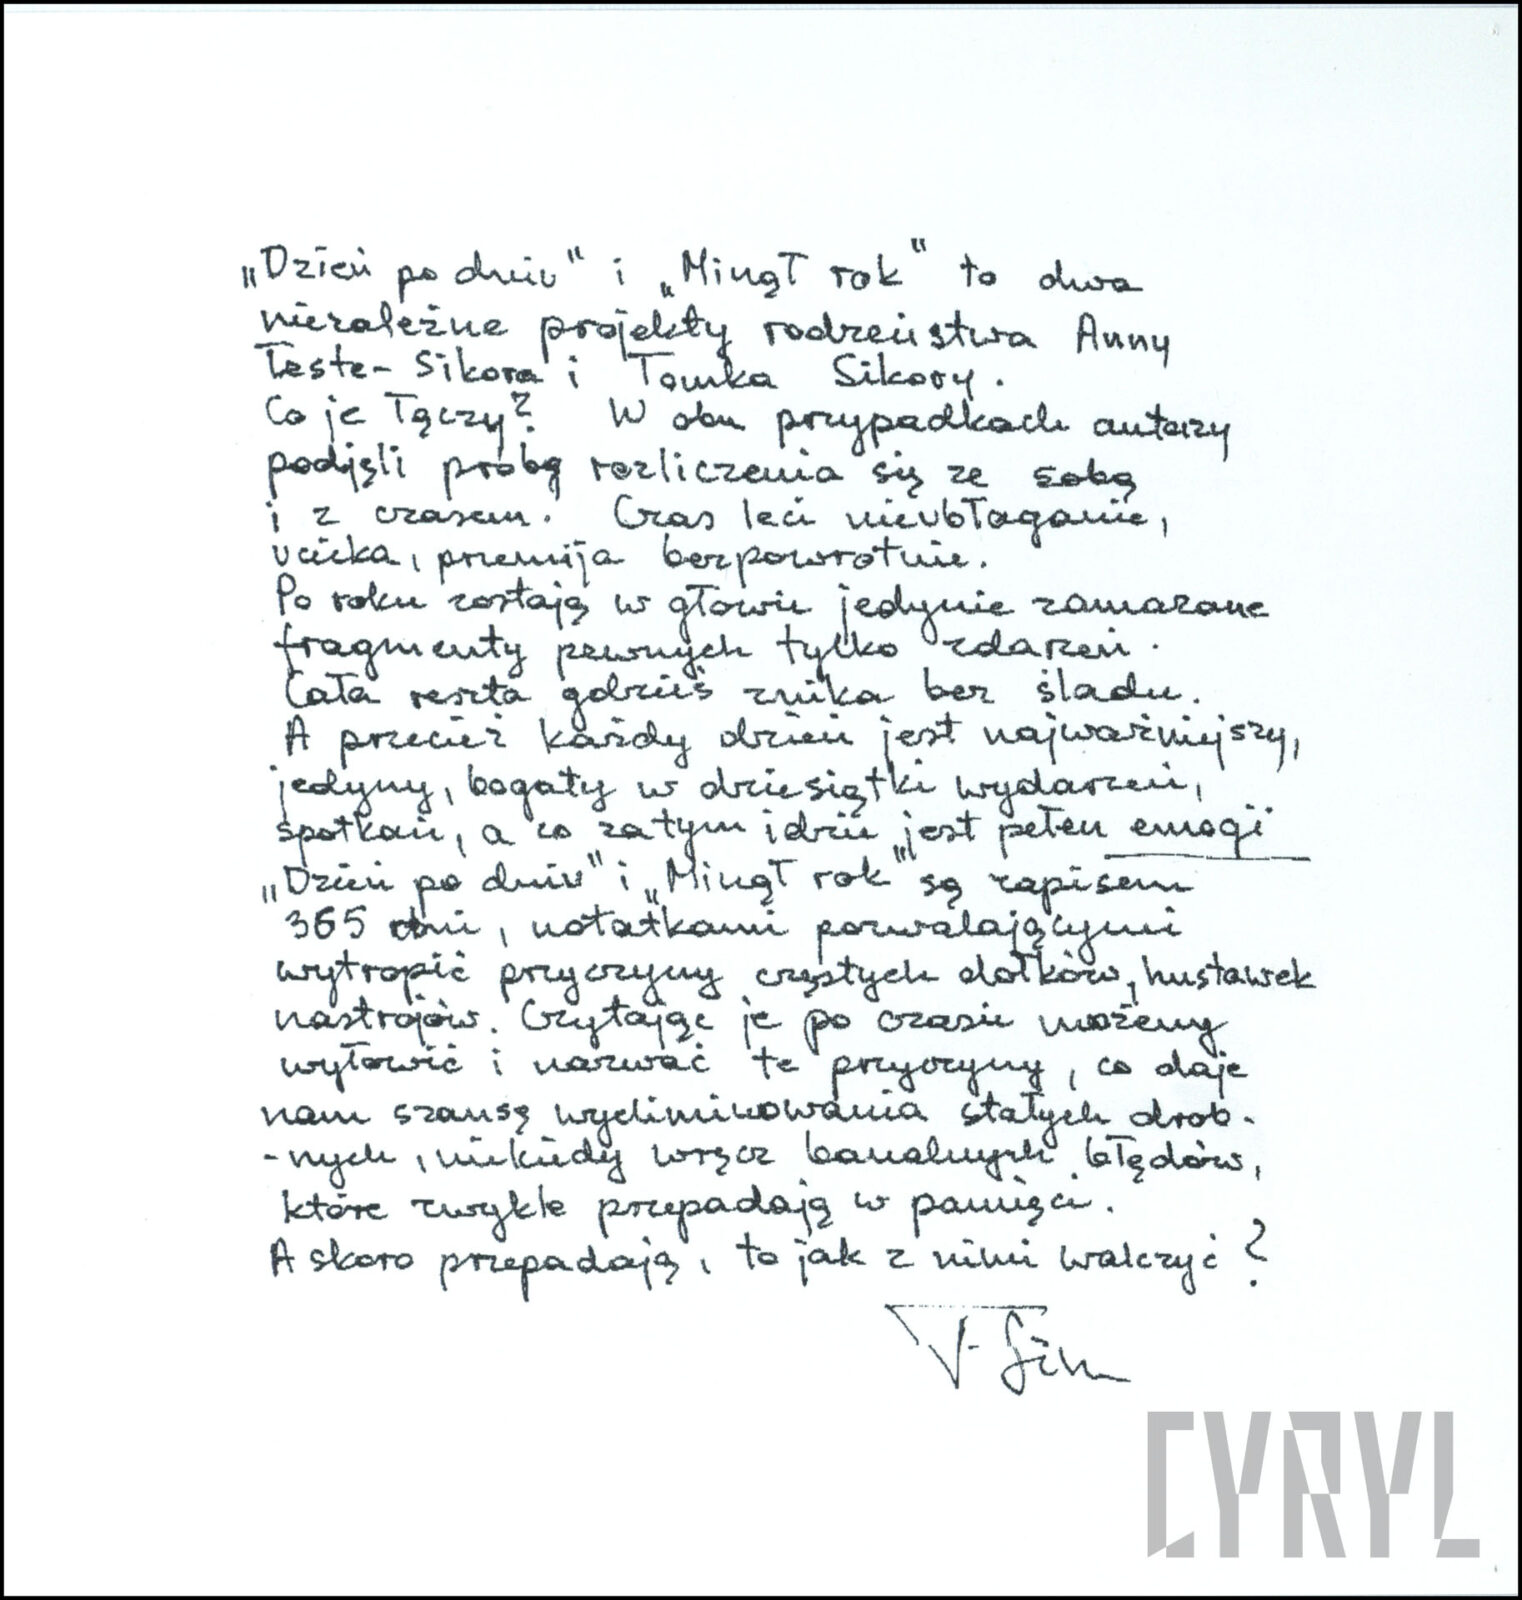 „Dzień po dniu" i „Minął rok" to dwa
niezależne projekty rodzeństwa Anny
Teste- Sikora i Tomka Sikory.
Co je łączy? W obu przypadkach autorzy
podjęli próbę rozliczenia się ze sobą
i z czasem. Czas leci nieubłaganie,
ucieka, przemija bezpowrotnie.
Po roku zostają w głowie jedynie zamazane
fragmenty pewnych tylko zdarzeń.
Cała reszta gdzieś znika bez śladu.
A przecież każdy dzień jest najważniejszy,
jedyny, bogaty w dziesiątki wydarzeń,
spotkań, a co za tym idzie jest pełen emocji
„Dzień po dniu" i „Minął rok" są zapisem
365 dni, notatkami pozwalającymi
wytropić przyczyny częstych dołków, hustawek
nastrojów. Czytając je po czasie możemy
wyłowić i nazwać te przyczyny, co daje
nam szansę wyeliminowania stałych drob-
-nych, niekiedy wręcz banalnych błędów,
które zwykle przepadają w pamięci.
A skoro przepadają, to jak z nimi walczyć?
T. Sik
CYRYL